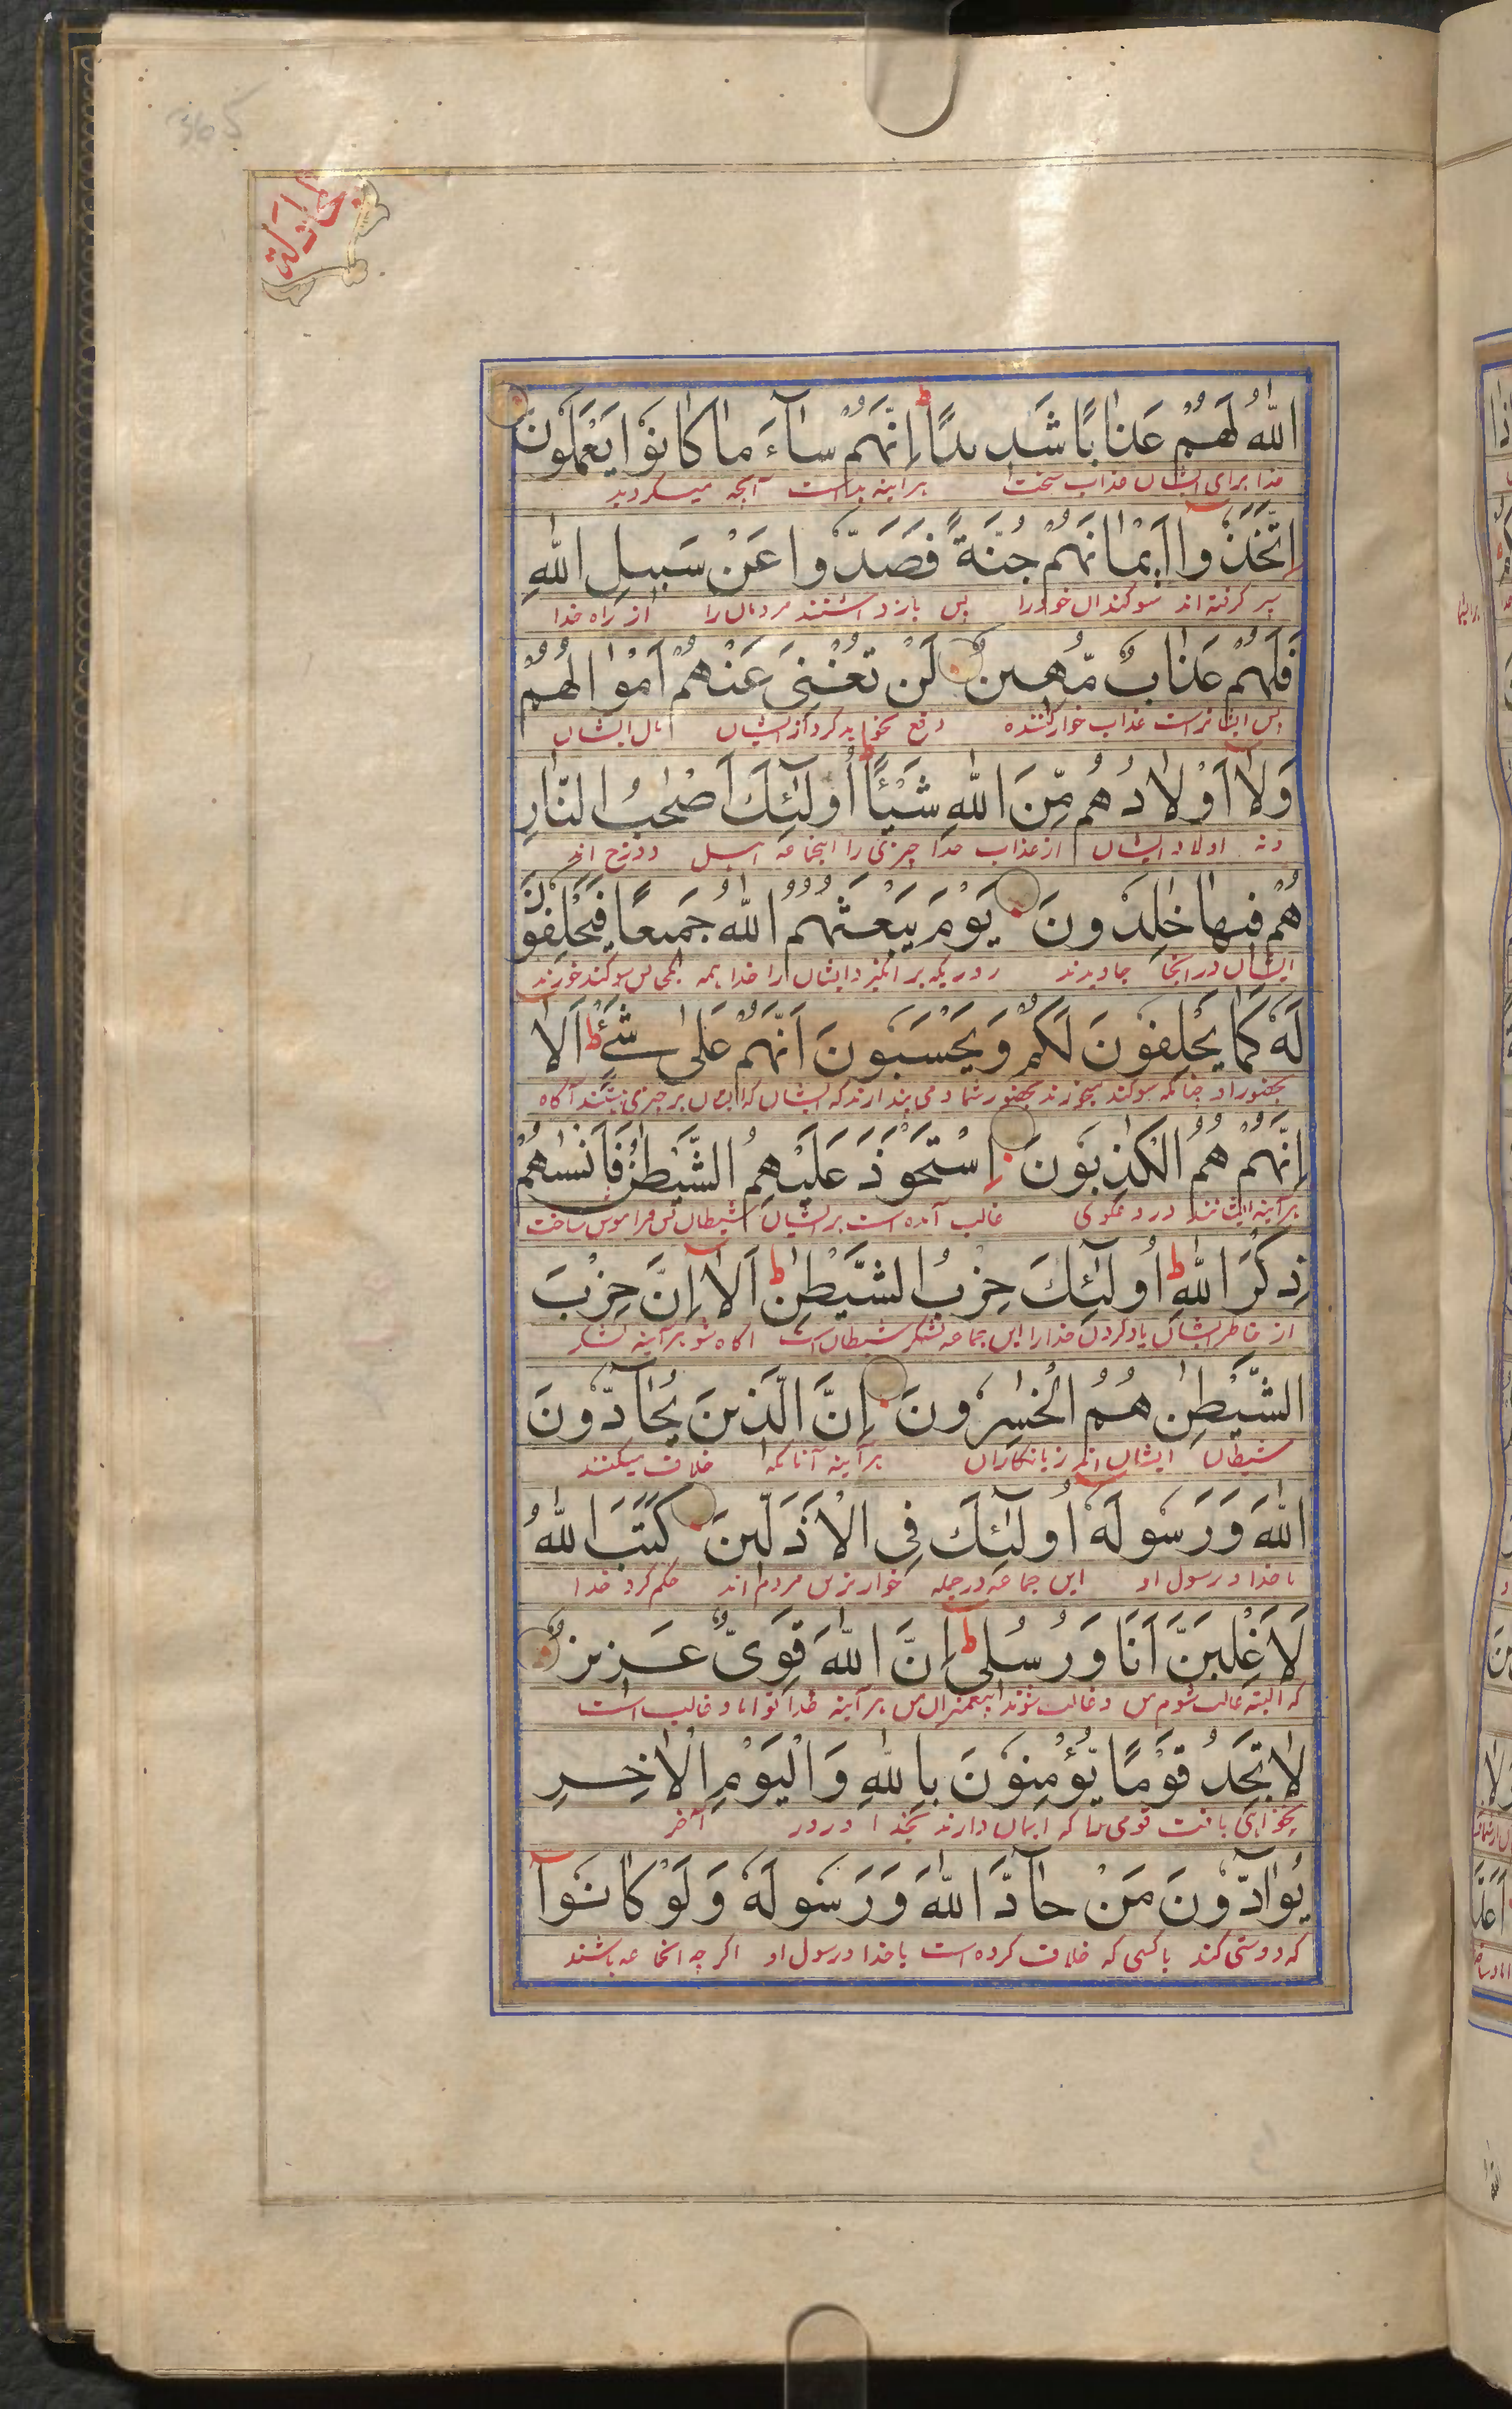 365
مجادلة
اللّٰهُ لَهُمْ عَذَابًا شَدِيدًا ط اِنَّهُمْ سَآءَ مَا كَانُوْا يَعْمَلُونَ
خدا برای ایشان عذاب سخت هرآینه بد است آنچه میکردند
اِتَّخَذُوْٓا اَيْمَانَهُمْ جُنَّةً فَصَدُّوْا عَنْ سَبِيلِ اللّٰهِ
سپر گرفته اند سوکندان خود را پس بازداشتند مردمان را از راه خدا
فَلَهُمْ عَذَابٌ مُّهِينٌ لَنْ تُغْنِيَ عَنْهُمْ اَمْوَالُهُمْ
پس ایشانراست عذاب خوارکننده دفع نخواهد کرد از ایشان مال ایشان
وَلَآ اَوْلَادُهُمْ مِّنَ اللّٰهِ شَيْئًا ط اُولٰٓئِكَ اَصْحٰبُ النَّارِ
و نه اولاد ایشان از عذاب خدا چیزی را اینجماعه اهل دوزخ اند
هُمْ فِيهَا خٰلِدُونَ يَوْمَ يَبْعَثُهُمُ اللّٰهُ جَمِيعًا فَيَحْلِفُوْنَ
ایشان در آنجا جاویدند روزیکه برانگیزد ایشان را خدا همه یکجا پس سوکند خورند
لَهٗ كَمَا يَحْلِفُونَ لَكُمْ وَيَحْسَبُونَ اَنَّهُمْ عَلٰى شَيْءٍ ط اَلَآ
بحضور او چنانکه سوکند میخورند بحضور شما و می پندارند که ایشان بر چیزی هستند آگاه
اِنَّهُمْ هُمُ الْكٰذِبُونَ اِسْتَحْوَذَ عَلَيْهِمُ الشَّيْطٰنُ فَاَنْسٰهُمْ
هرآینه ایشانند دروغگوی غالب آمده است بر ایشان شیطان پس فراموش ساخت
ذِكْرَ اللّٰهِ ط اُولٰٓئِكَ حِزْبُ الشَّيْطٰنِ ط اَلَآ اِنَّ حِزْبَ
از خاطر ایشان یاد کردن خدا را این جماعه لشکر شیطان است آگاه شو هرآینه لشکر
الشَّيْطٰنِ هُمُ الْخٰسِرُونَ اِنَّ الَّذِينَ يُحَآدُّونَ
شیطان ایشان اند زیانکاران هرآینه آنانکه خلاف میکنند
اللّٰهَ وَرَسُولَهٗٓ اُولٰٓئِكَ فِي الْاَذَلِّينَ كَتَبَ اللّٰهُ
با خدا و رسول او این جماعه در جمله خوارترین مردم اند حکم کرد خدا
لَاَغْلِبَنَّ اَنَا وَرُسُلِيْ ط اِنَّ اللّٰهَ قَوِيٌّ عَزِيزٌ
که البته غالب شوم من و غالب شوند پیغمبران من هرآینه خدا توانا و غالب است
لَا تَجِدُ قَوْمًا يُّؤْمِنُونَ بِاللّٰهِ وَالْيَوْمِ الْاٰخِرِ
نخواهی یافت قومی را که ایمان دارند بخدا و روز آخر
يُوَآدُّونَ مَنْ حَآدَّ اللّٰهَ وَرَسُولَهٗ وَلَوْ كَانُوْٓا
که دوستی کنند با کسی که خلاف کرده است با خدا و رسول او اگرچه آنجماعه باشند